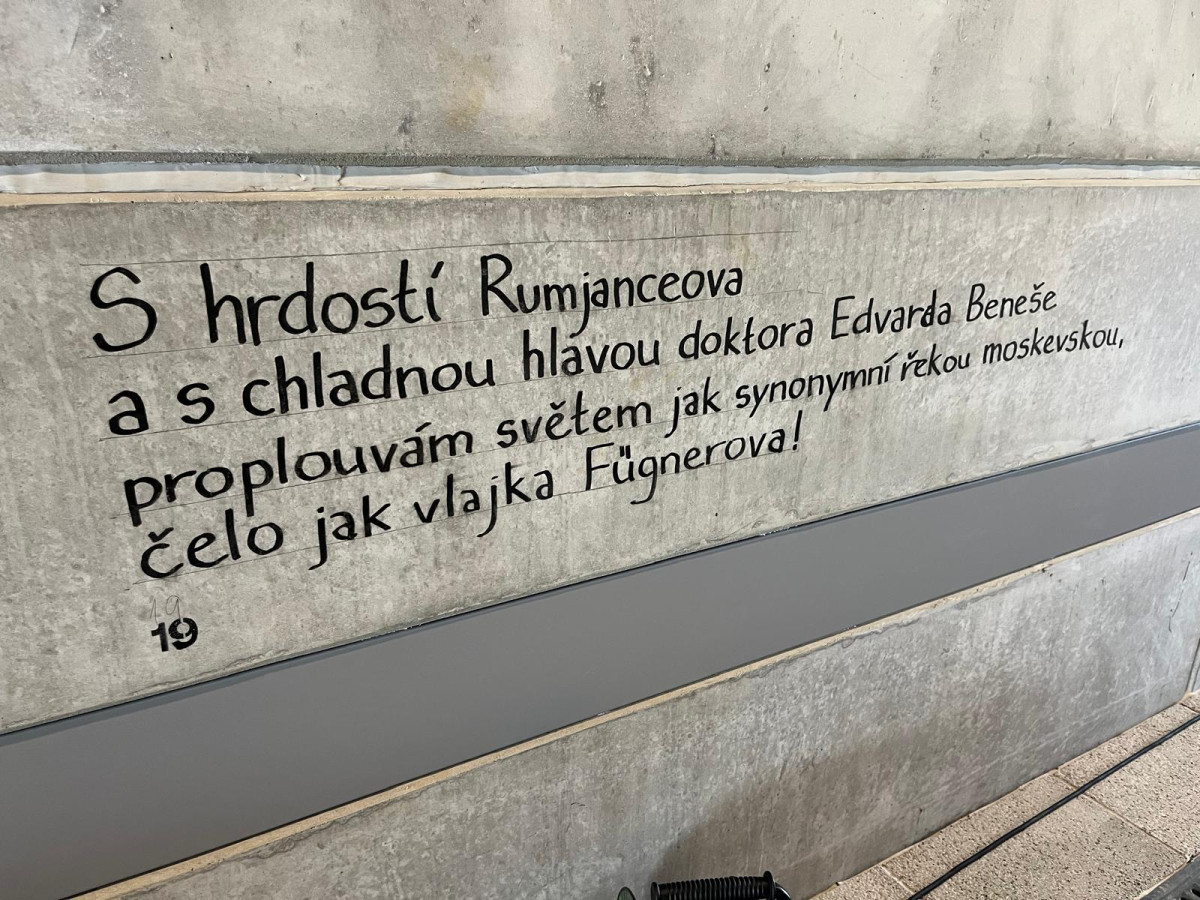 S hrdostí Rumjanceova
a s chladnou hlavou doktora Edvarda Beneše
proplouvám světem jak synonymní řekou moskevskou,
čelo jak vlajka Fügnerova!
19
19